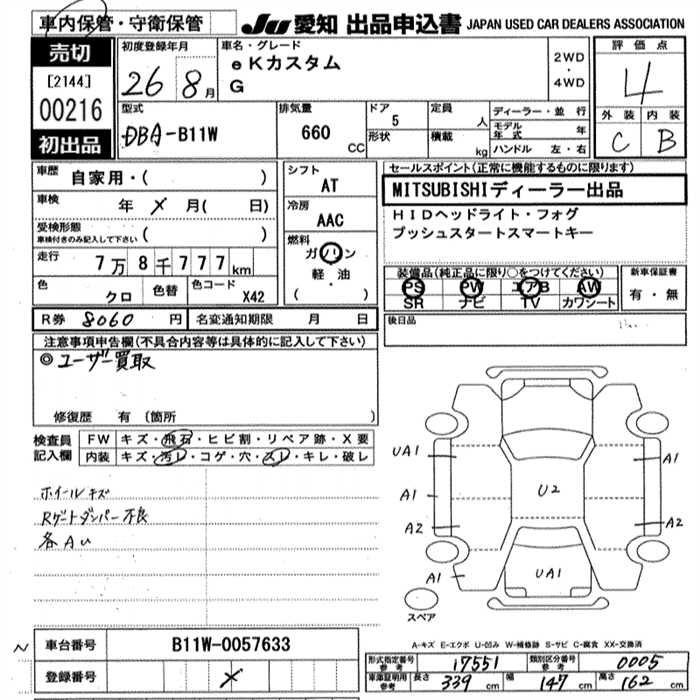 車内保管・守衛保管
JU 愛知 出品申込書 JAPAN USED CAR DEALERS ASSOCIATION
売切
[2144]
00216
初出品
初度登録年月
26年 8月
車名・グレード
eKカスタム
G
2WD
・
4WD
評価点
4
外装 内装
C B
型式
DBA-B11W
排気量
660
CC
ドア 5
形状
定員 人
積載 kg
ディーラー・並行
モデル年式 年
ハンドル 左・右
車歴 自家用・( )
車検 年 メ 月( 日)
受検形態
車検付きのみ記入して下さい ( )
走行 7万8千777km
色 クロ 色替 色コード X42
シフト
AT
冷房
AAC
燃料
ガソリン
軽・油
( )
セールスポイント(正常に機能するものに限ります)
MITSUBISHIディーラー出品
HIDヘッドライト・フォグ
プッシュスタートスマートキー
装備品(純正品に限り○をつけてください)
PS PW エアB AW
SR ナビ TV カワシート
新車保証書
有・無
R券 8060 円 名変通知期限 月 日
後日品
注意事項申告欄(不具合内容等は具体的に記入して下さい)
◎ユーザー買取
修復歴 有 〔箇所 〕
検査員記入欄
FW キズ・飛石・ヒビ割・リペア跡・X要
内装 キズ・汚レ・コゲ・穴・スレ・キレ・破レ
ホイールキズ
Rゲートダンパー不良
各AU
UA1
A1
A2
A1
U2
UA1
A1
A2
スペア
A-キズ E-エクボ U-凹み W-補修跡 S-サビ C-腐食 XX-交換済
車台番号 B11W-0057633
登録番号 メ
形式指定番号 参考 17551 類別区分番号 参考 0005
車庫証明用 参考 長さ 339 cm 幅 147 cm 高さ 162 cm